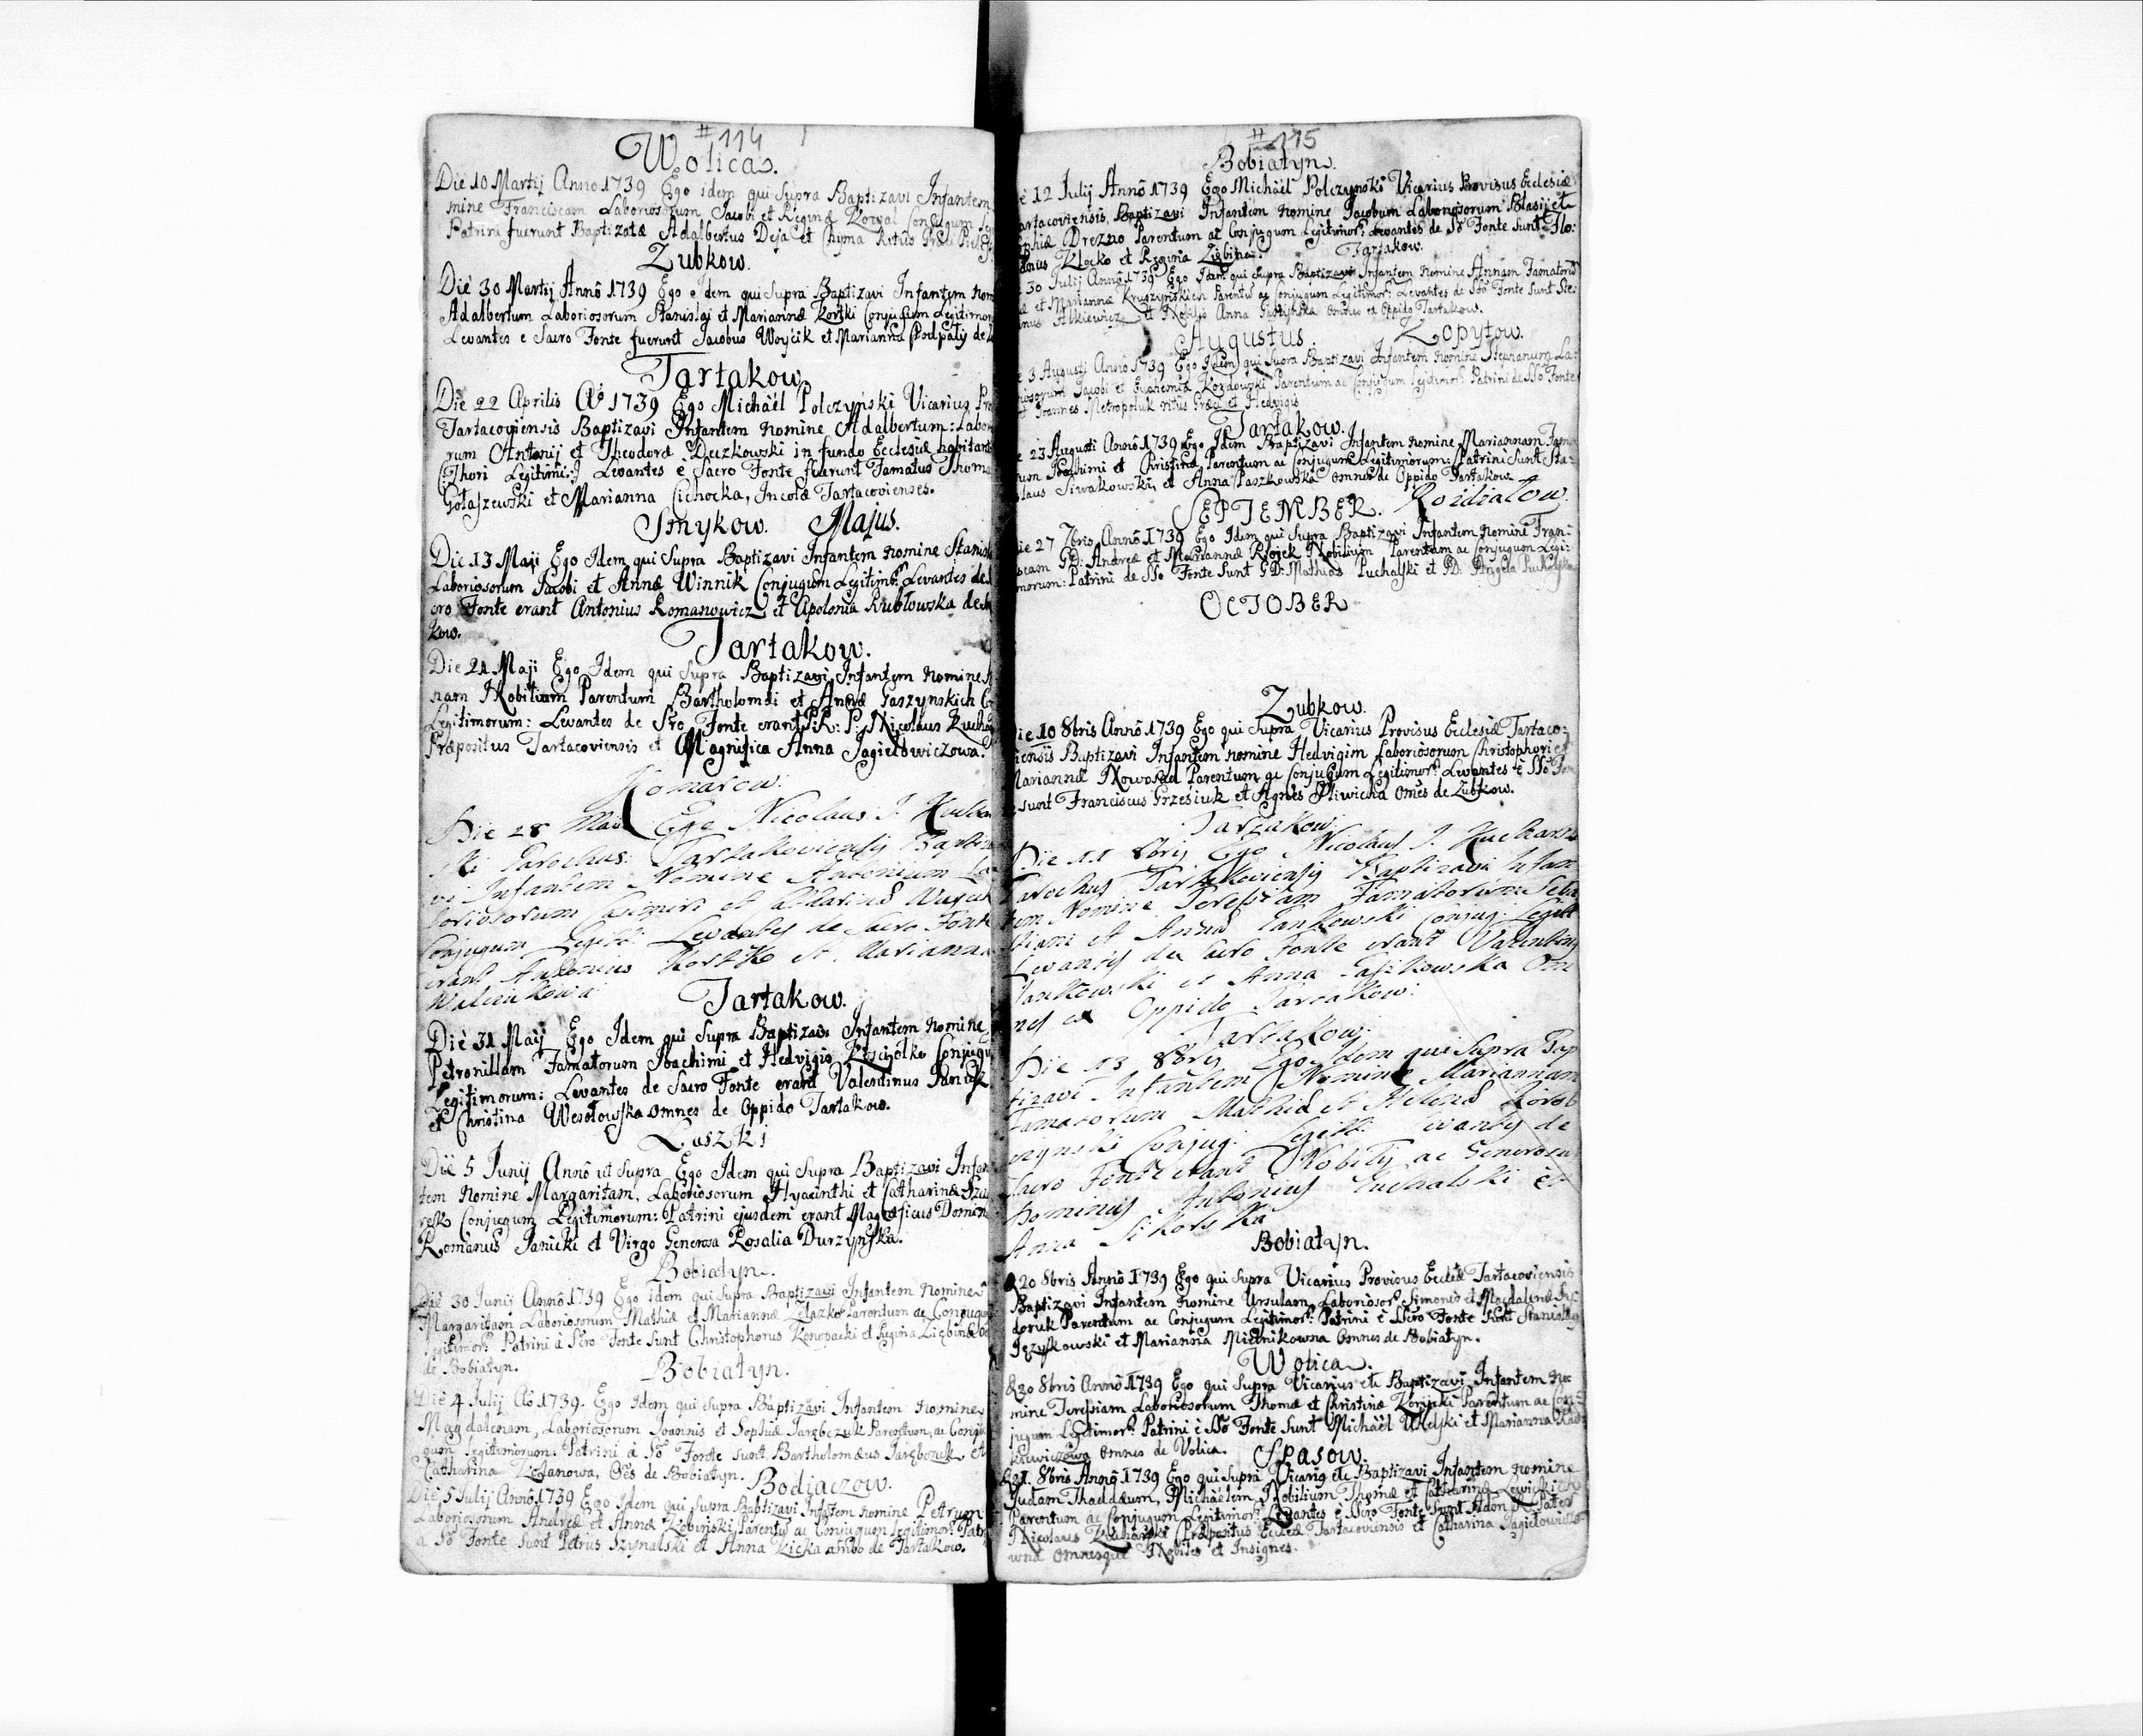 #114
Wolica.
Die 10 Martij Anno 1739 Ego idem qui Supra Baptizavi Infantem
mine Franciscam Laboriosorum Jacobi et Reginæ Conjugum
Patrini fuerunt Baptizatæ Adalbertus Deja et Chyma Ritus
Zubkow.
Die 30 Martij Annô 1739 Ego Idem qui Supra Baptizavi Infantem nom
Adalbertum Laboriosorum Stanislai et Mariannæ Kortki Conjugum Legitimor
Levantes e Sacro Fonte fuerunt Jacobus Woycik et Marianna Podpały de
Tartakow
Die 22 Aprilis Aô 1739 Ego Michaël Polczyński Vicarius Pro
Tartacoviensis Baptizavi Infantem nomine Adalbertum: Labor
rum Antonij et Theodoræ Deczkowski in fundo Ecclesiæ habitant
(Thori Legitimi:) Levantes è Sacro Fonte fuerunt Famatus Thoma
Gołaszewski et Marianna Cichocka, Incolæ Tartacovienses.
Smykow. Majus.
Die 13 Maij Ego Idem qui Supra Baptizavi Infantem nomine Stanisl
Laboriosorum Jacobi et Annæ Winnik Conjugum Legitimor Levantes de
cro Fonte erant Antonius Romanowicz et Apolonia Kubłowska de
kow.
Tartakow.
Die 21 Maji Ego Idem qui Supra Baptizavi Infantem nomine
nam Nobilium Parentum Bartholomæi et Annæ Gaszynskich
Legitimorum: Levantes de Sro Fonte erant P: R: P: Nicolaus Kucha
Præpositus Tartacoviensis et Magnifica Anna Jagiełowiczowa.
Komarow.
Die 28 Maii Ego Nicolaus J. Kuchar
ski Parochus Tartakoviensis Baptiza
vi Infantem Nomine Antonium La
boriosorum Casimiri et Catharinæ
Conjugum Legitt: Levantes de Sacro Fonte
erant Antonius Kostko et Marianna

Tartakow.
Die 31 Maij Ego Idem qui Supra Baptizavi Infantem nomine
Petronillam Famatorum Joachimi et Hedvigis Kosciółko Conjugu
Legitimorum: Levantes de Sacro Fonte erant Valentinus
et Christina Wesołowska omnes de Oppido Tartakow.
Luszki
Die 5 Junij Annô ut Supra Ego Idem qui Supra Baptizavi Infan
tem nomine Margaritam, Laboriosorum Hyacinthi et Catharinæ
Conjugum Legitimorum: Patrini ejusdem erant Magnificus Domin
Romanus Janicki et Virgo Generosa Rosalia Durzyńska.
Bobiatyn.
Die 30 Junij Annô 1739 Ego idem qui Supra Baptizavi Infantem nomine
Margaritam Laboriosorum Mathiæ et Mariannæ Żelazko Parentum ac Conjugu
Legitimor: Patrini à Sro Fonte Sunt Christophorus Konopacki et Regina
de Bobiatyn.
Bobiatyn.
Die 4 Julij Aô 1739. Ego Idem qui Supra Baptizavi Infantem nomine
Magdalenam, Laboriosorum Joannis et Sophiæ Jarębczuk Parentum, ac Conju
gum legitimorum: Patrini à Sô Fonte Sunt Bartholomæus Jarębczuk et
Catharina Kozanowa, Oes de Bobiatyn.
Bodiaczow.
Die 5 Julij Annô 1739 Ego Idem qui Supra Baptizavi Infantem nomine Petrum
Laboriosorum Andreæ et Annæ Kobinski, Parentū ac Conjugum legitimor: Patr
a Sô Fonte Sunt Petrus Szynalski et Anna Kicka ambo de Tartakow.
#115
Bobiatyn.
e 12 Julij Annô 1739 Ego Michaël Polczynski Vicarius Provisus Ecclesiæ
artacoviensis, Baptizavi Infantem nomine Jacobum Laboriosorum Blasij et
ophiæ Drozno Parentum ac Conjugum Legitimor: Levantes de Sô Fonte Sunt Flo:
Klocko et Regina
Tartakow.
30 Julij Annô 1739 Ego Idem qui Supra Baptizavi Infantem nomine Annam Famatorū
et Mariannæ Kruszyńskich Parentū ac Conjugum Legitimor: Levantes de Sô Fonte Sunt Ste:
Alkiewicz et Nobilis Anna omnes ex Oppido Tartakow.
Augustus. Kopytow.
e 3 Augusti Anno 1739 Ego Idem qui Supra Baptizavi Infantem nomine Stephanum La:
riosorum Jacobi et Euphemiæ Kozdowski Parentum ac Conjugum Legitimor: Patrini de SSo Fonte
Joannes Metropoluk ritus Græci et Hedvigis
Tartakow.
e 23 Augusti Annô 1739 Ego Idem Baptizavi Infantem nomine Mariannam Fam
rum Joachimi et Christinæ Parentum ac Conjugum Legitimorum: Patrini Sunt Sta:
slaus Siwakowski, et Anna Paszkowska omnes de Oppido Tartakow.
SEPTEMBER. Rozdiałow.
ie 27 7bris Annô 1739 Ego Idem qui Supra Baptizavi Infantem nomine Fran:
scam GD: Andreæ et Mariannæ Nobilium Parentum ac Conjugum Legi:
morum: Patrini de SSo Fonte Sunt GD: Mathias Puchalski et GD: Angela Puchalska
OCTOBER
Zubkow.
ie 10 8bris Annô 1739 Ego qui Supra Vicarius Provisus Ecclesiæ Tartaco:
iensis Baptizavi Infantem nomine Hedvigim Laboriosorum Christophori et
Mariannæ Nowosad Parentum ac Conjugum Legitimor: Levantes è SSo Fon
sunt Franciscus Grzesiuk et Agnes Pliwicka omes de Zubkow.
Tartakow.
Die 11 8bris Ego Nicolaus J. Kucharski
Parochus Tartakoviensis Baptizavi Infan
tem Nomine Teresiam Famatorum Seba
stiani et Annæ Jankowski Conjug: Legitt
Levantes de Sacro Fonte erant Valentinus
Jankowski et Anna Paszkowska Om
nes ex Oppido Tartakow.
Tartakow.
Die 13 8bris Ego Idem qui Supra Bap
tizavi Infantem Nomine Mariannam
Famatorum Mathiæ et Helenæ
Conjug: Legitt: Levantes de
Sacro Fonte erant Nobilis ac Generosus
Dominus Antonius Puchalski et
Anna Sikorska
Bobiatyn.
20 8bris Annô 1739 Ego qui Supra Vicarius Provisus Ecclæ Tartacoviensis
Baptizavi Infantem nomine Ursulam Laboriosor: Simonis et Magdalenæ
Parentum ac Conjugum Legitimor: Patrini è SSro Fonte Sunt Stanislaus
Językowski et Marianna Mielnikowna Omnes de Bobiatyn.
Wolica.
30 8bris Annô 1739 Ego qui Supra Vicarius etc Baptizavi Infantem no
mine Teresiam Laboriosorum Thomæ et Christinæ Parentum ac Con
jugum Legitimor: Patrini è SSo Fonte Sunt Michaël et Marianna
Omnes de Volica.
Spasow.
31. 8bris Annô 1739 Ego qui Supra Vicarius etc Baptizavi Infantem nomine
Judam Thaddæum, Michaëlem Nobilium Thomæ et Catharinæ Lewickich
Parentum ac Conjugum Legitimor: Levantes è SSro Fonte Sunt Adm R. Pater
Nicolaus Kucharski Præpositus Ecclæ Tartacoviensis et Catharina Jagiełowiczo
wna Omnesque Nobiles et Insignes.